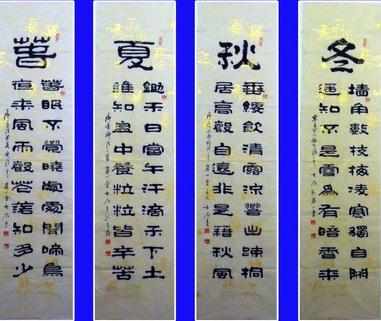 春
春眠不覺曉處處聞啼鳥
夜來風雨聲花落知多少
夏
鋤禾日當午汗滴禾下土
誰知盤中餐粒粒皆辛苦
秋
垂緌飲清露流響出疎桐
居高聲自遠非是藉秋風
冬
墻角數枝梅凌寒獨自開
遙知不是雪為有暗香來